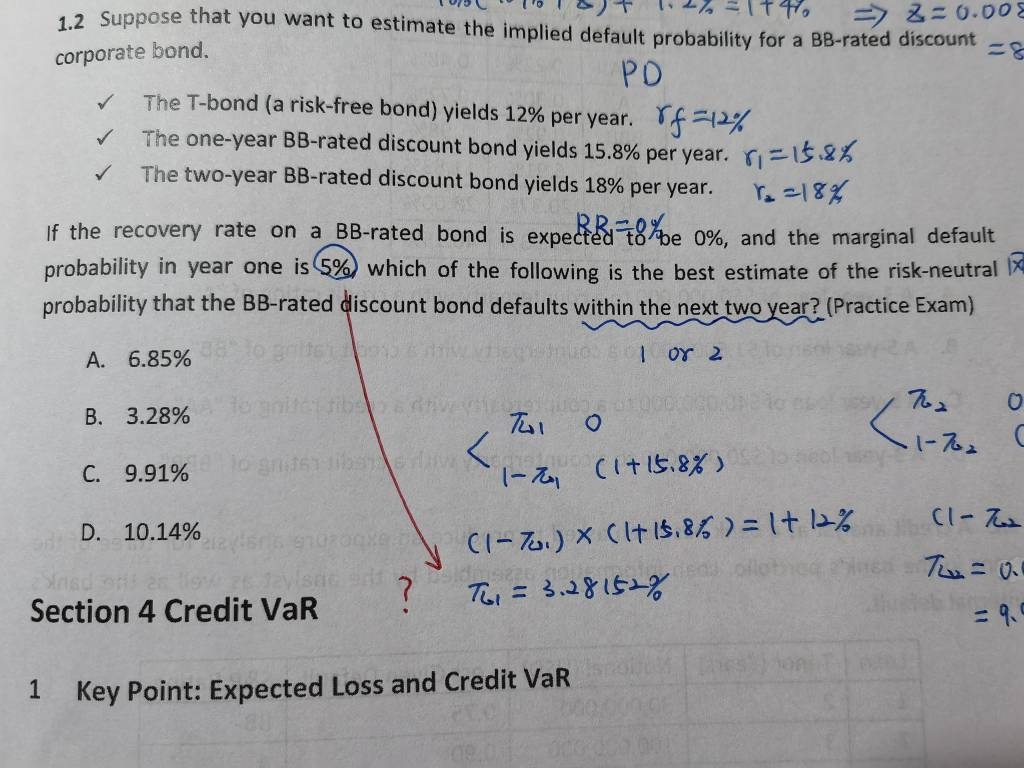 1.2% = 1 + 4% ⇒ z = 0.008
1.2 Suppose that you want to estimate the implied default probability for a BB-rated discount
= 8
corporate bond.
PD
✓ The T-bond (a risk-free bond) yields 12% per year. rf = 12%
✓ The one-year BB-rated discount bond yields 15.8% per year. r1 = 15.8%
✓ The two-year BB-rated discount bond yields 18% per year. r2 = 18%
RR = 0%
If the recovery rate on a BB-rated bond is expected to be 0%, and the marginal default
probability in year one is 5%, which of the following is the best estimate of the risk-neutral
probability that the BB-rated discount bond defaults within the next two year? (Practice Exam)
A. 6.85%
1 or 2
B. 3.28%
π1 0
π2 0
1-π1 (1+15.8%)
1-π2
C. 9.91%
D. 10.14%
(1-π1) × (1+15.8%) = 1+12%
(1-π2
? π1 = 3.28152%
π2 = 0.
Section 4 Credit VaR
= 9.
1 Key Point: Expected Loss and Credit VaR